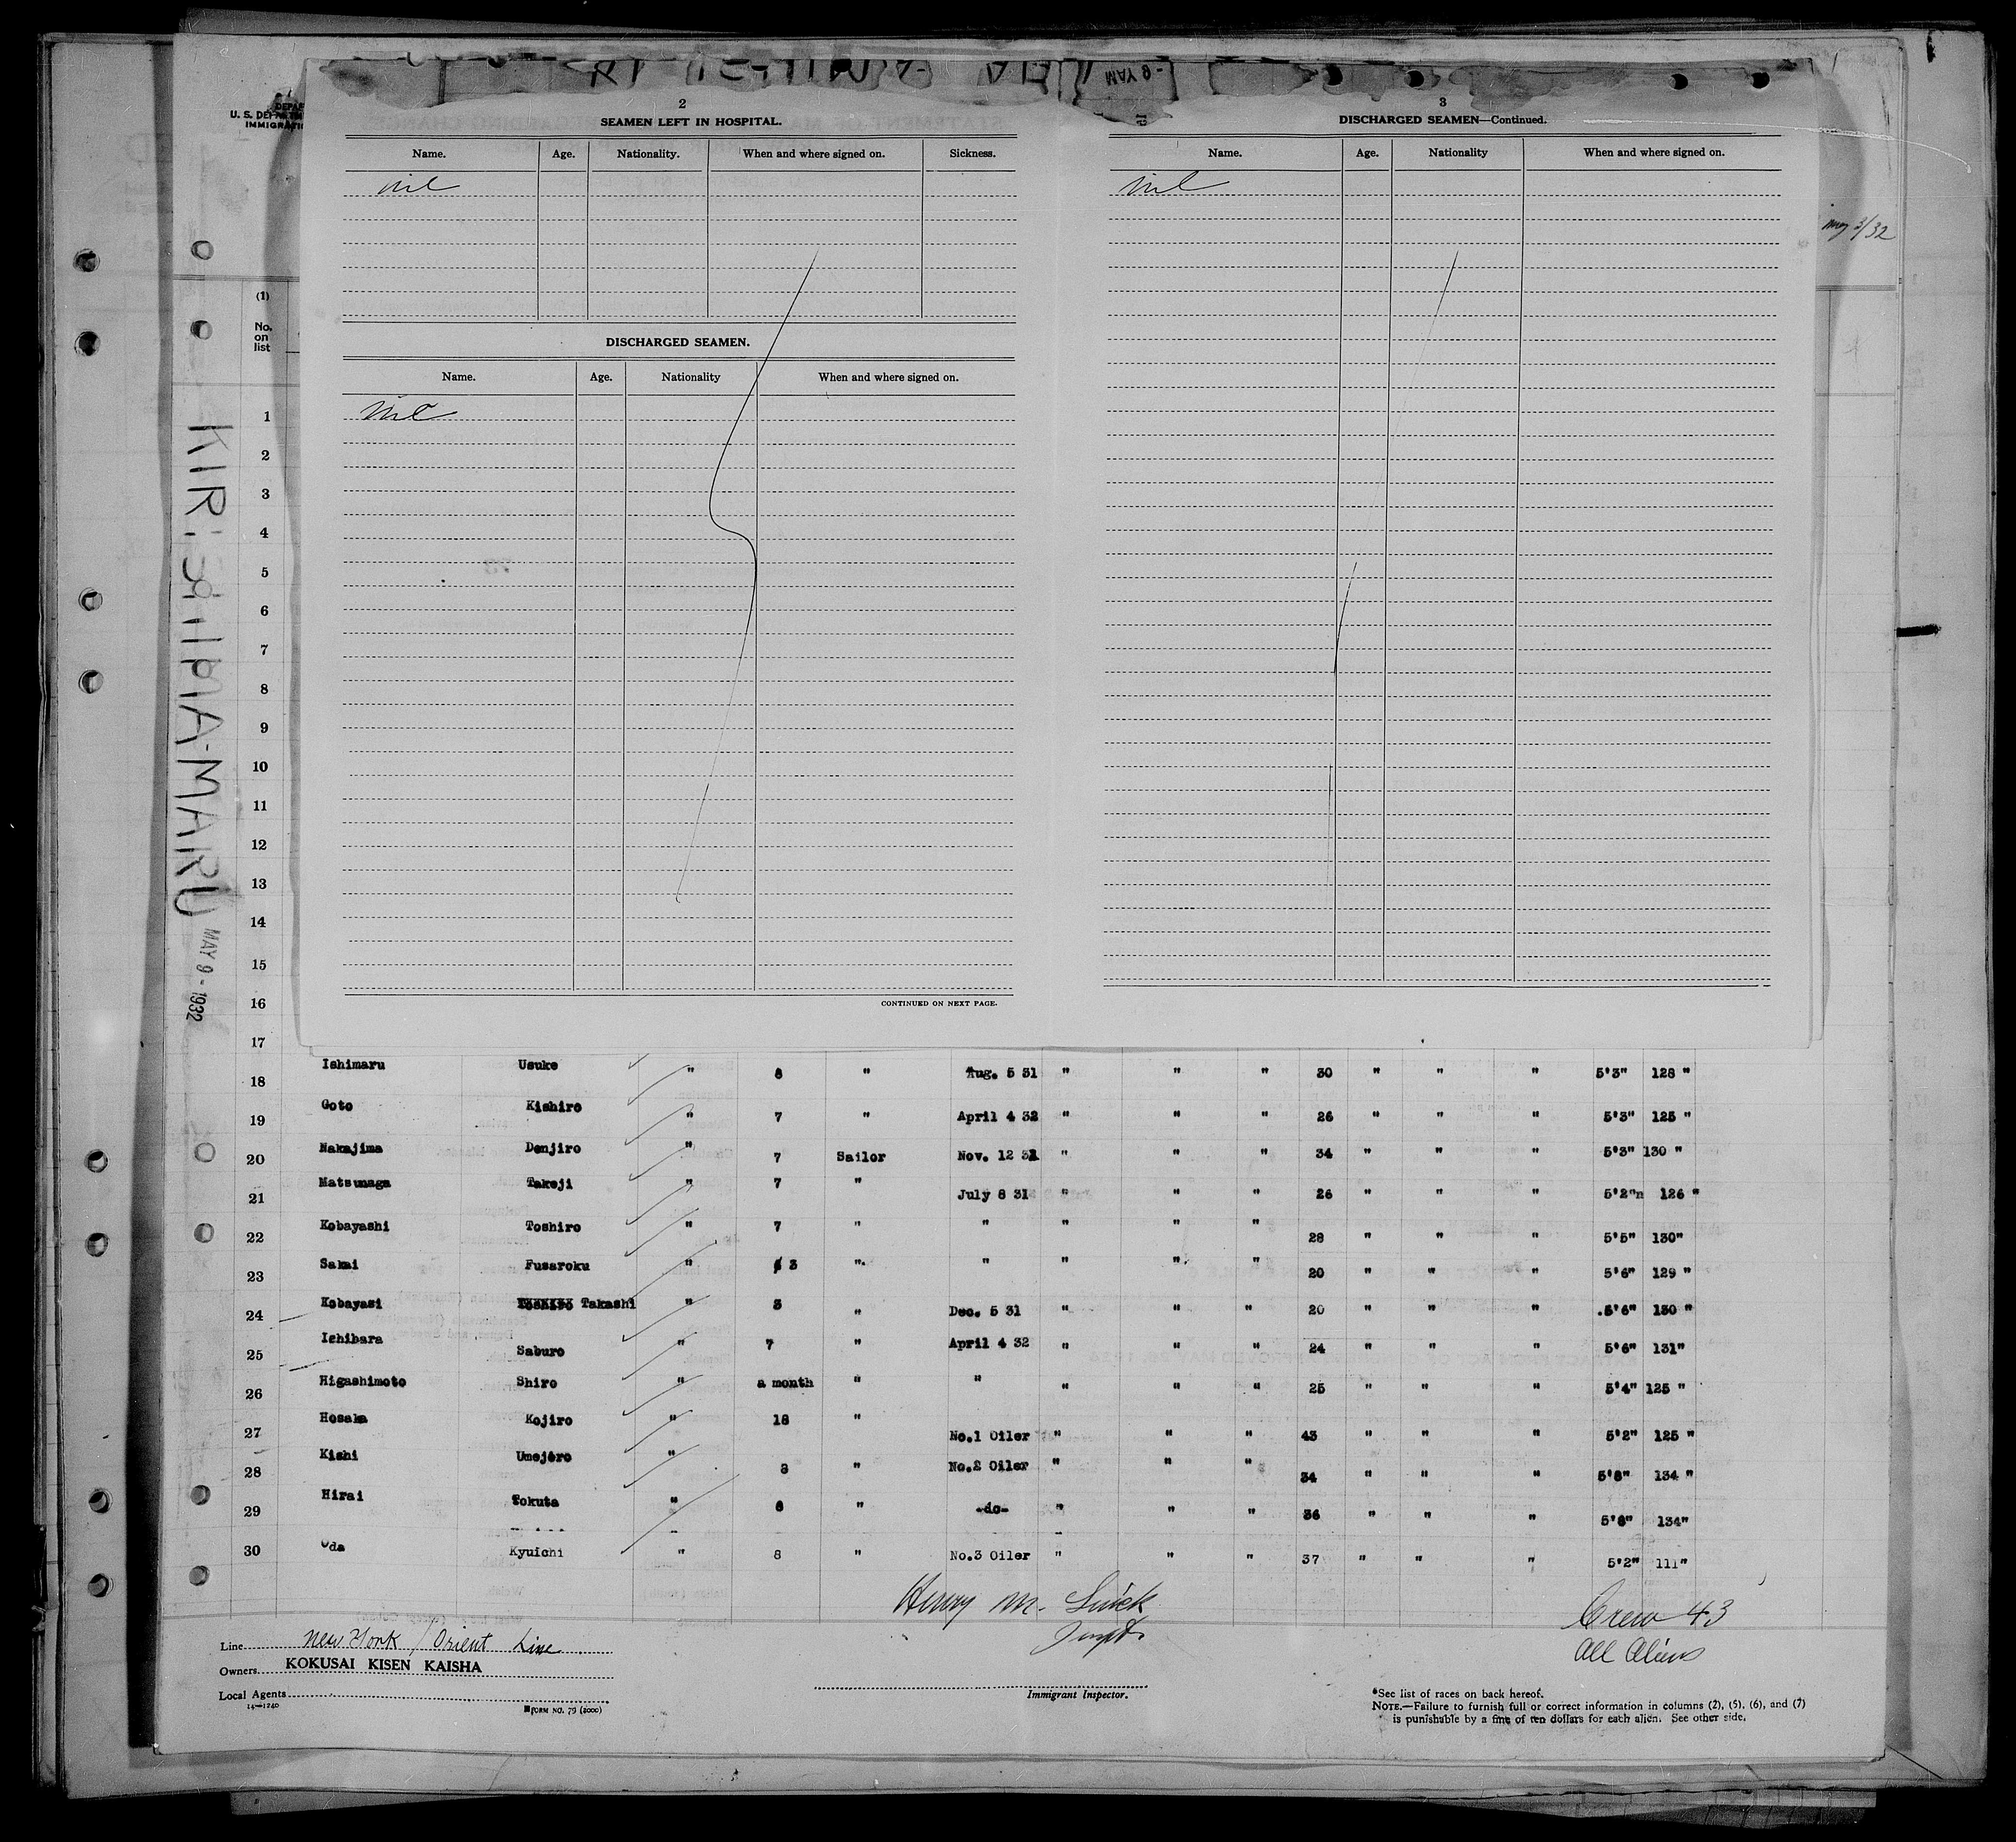 DEPAR
U. S. DEPARTM
IMMIGRATIO
MAY 9 -
2
SEAMEN LEFT IN HOSPITAL.
Name. Age. Nationality. When and where signed on. Sickness.
nil
DISCHARGED SEAMEN.
Name. Age. Nationality When and where signed on.
nil
CONTINUED ON NEXT PAGE.
3
DISCHARGED SEAMEN—Continued.
Name. Age. Nationality When and where signed on.
nil
May 3/32
(1)
No. on list
1
2
3
4
5
6
7
8
9
10
11
12
13
14
15
16
17
KIRISHIMA-MARU
MAY 9 - 1932
18 Ishimaru Usuke " 8 " Aug. 5 31 " " " 30 " " " 5'3" 128 "
19 Goto Kishiro " 7 " April 4 32 " " " 26 " " " 5'3" 125 "
20 Nakajima Denjiro " 7 Sailor Nov. 12 31 " " " 34 " " " 5'3" 130 "
21 Matsunaga Takeji " 7 " July 8 31 " " " 26 " " " 5'2"n 126 "
22 Kobayashi Toshiro " 7 " " " " " 28 " " " 5'5" 130"
23 Sakai Fusaroku " 3 " " " " " 20 " " " 5'6" 129 "
24 Kobayasi Takashi " 3 " Dec. 5 31 " " " 20 " " " 5'6" 130 "
25 Ichibara Saburo " 7 " April 4 32 " " " 24 " " " 5'6" 131"
26 Higashimoto Shiro " a month " " " " " 25 " " " 5'4" 125 "
27 Hosaka Kojiro " 18 " No.1 Oiler " " " 43 " " " 5'2" 125 "
28 Kishi Umejero " 8 " No.2 Oiler " " " 34 " " " 5'8" 134 "
29 Hirai Tokuta " 6 " -do- " " " 36 " " " 5'8" 134"
30 Oda Kyuichi " 8 " No.3 Oiler " " " 37 " " " 5'2" 111"
Henry M.
Inspt.
Crew 43
All Aliens
Line New York / Orient Line
Owners KOKUSAI KISEN KAISHA
Local Agents
14—1240
FORM NO. 79 (2000)
Immigrant Inspector.
*See list of races on back hereof.
NOTE.—Failure to furnish full or correct information in columns (2), (5), (6), and (7)
is punishable by a fine of ten dollars for each alien. See other side.